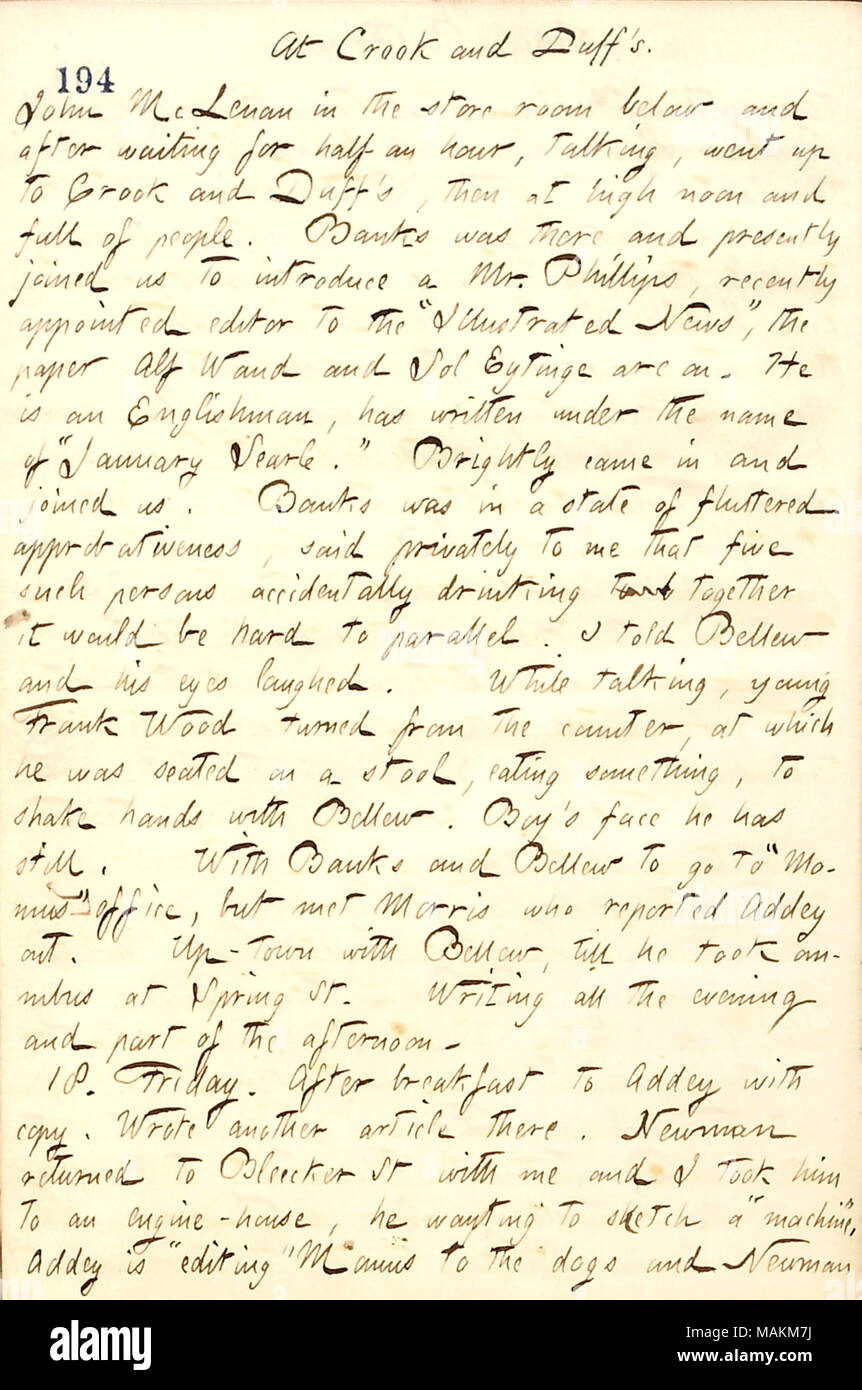 At Crook and Duff's.
194
John McLenan in the store room below and
after waiting for half-an hour, talking, went up
to Crook and Duff's, then at high noon and
full of people. Banks was there and presently
joined us to introduce a Mr. Phillips, recently
appointed editor to the "Illustrated News", the
paper Alf Waud and Sol Eytinge are on. He
is an Englishman, has written under the name
of "January Searle." Brightly came in and
joined us. Banks was in a state of fluttered
approbativeness, said privately to me that five
such persons accidentally drinking together
it would be hard to parallel. I told Bellew
and his eyes laughed. While talking, young
Frank Wood turned from the counter, at which
he was seated on a stool, eating something, to
shake hands with Bellew. Boy's face he has
still. With Banks and Bellew to go to "Mo-
mus" office, but met Morris who reported Addey
out. Up-town with Bellew, till he took om-
nibus at Spring St. Writing all the evening
and part of the afternoon.
18. Friday. After breakfast to Addey with
copy. Wrote another article there. Newman
returned to Bleecker St with me and I took him
to an engine-house, he wanting to sketch a "machine".
Addey is "editing" Momus to the dogs and Newman
alamy
Image ID: MAKM7J
www.alamy.com